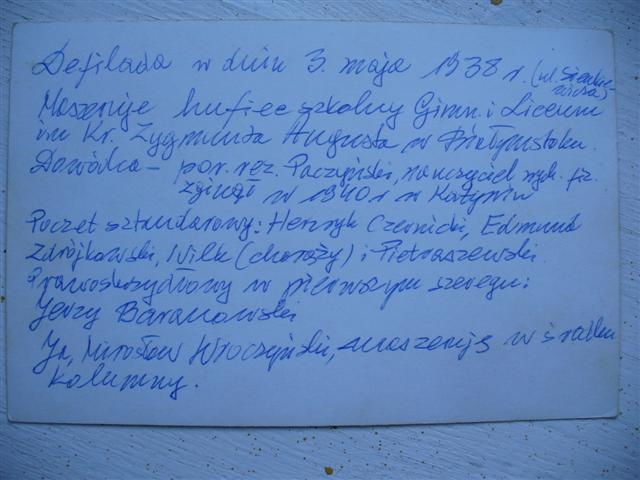 Defilada w dniu 3. maja 1938 r. (ul. Sienkie-
wicza)
Maszeruje hufiec szkolny Gimn. i Liceum
im Kr. Zygmunta Augusta w Białymstoku.
Dowódca – por. rez. Paczyński, nauczyciel wych. fiz.
zginął w 1940 r w Katyniu
Poczet sztandarowy: Henryk Czernicki, Edmund
Zdrójkowski, Wilk (chorąży) i Pietraszewski.
Prawoskrzydłowy w pierwszym szeregu:
Jerzy Baranowski
Ja, Mirosław Wroczyński, maszeruję w środku
kolumny.